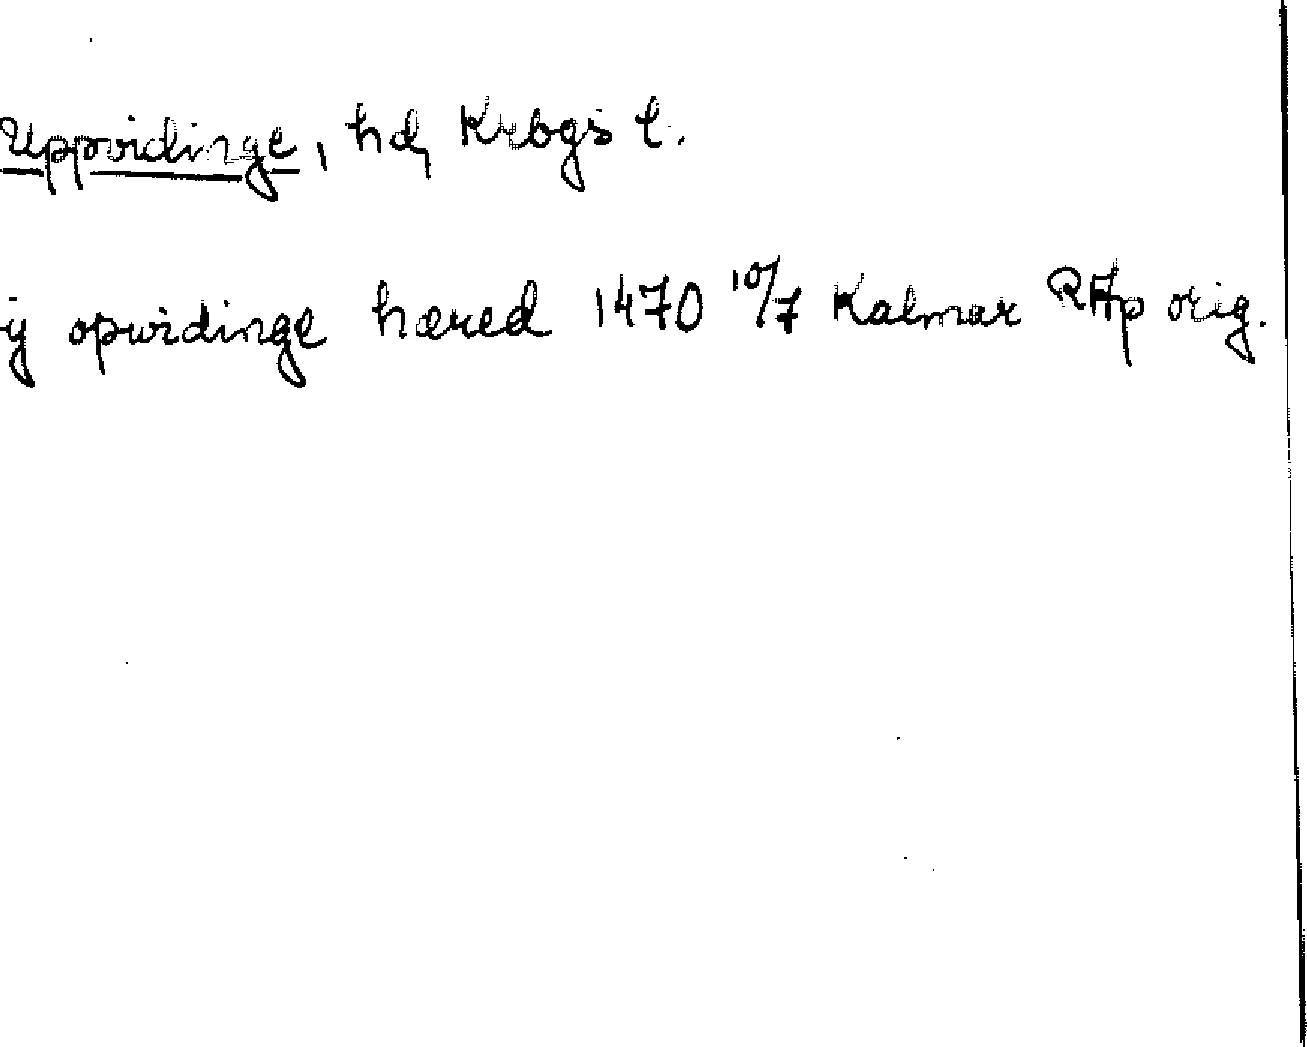 Uppvidinge, hd, Krbgs l.
ij opwidinge hæred 1470 10/7 Kalmar RAp orig.